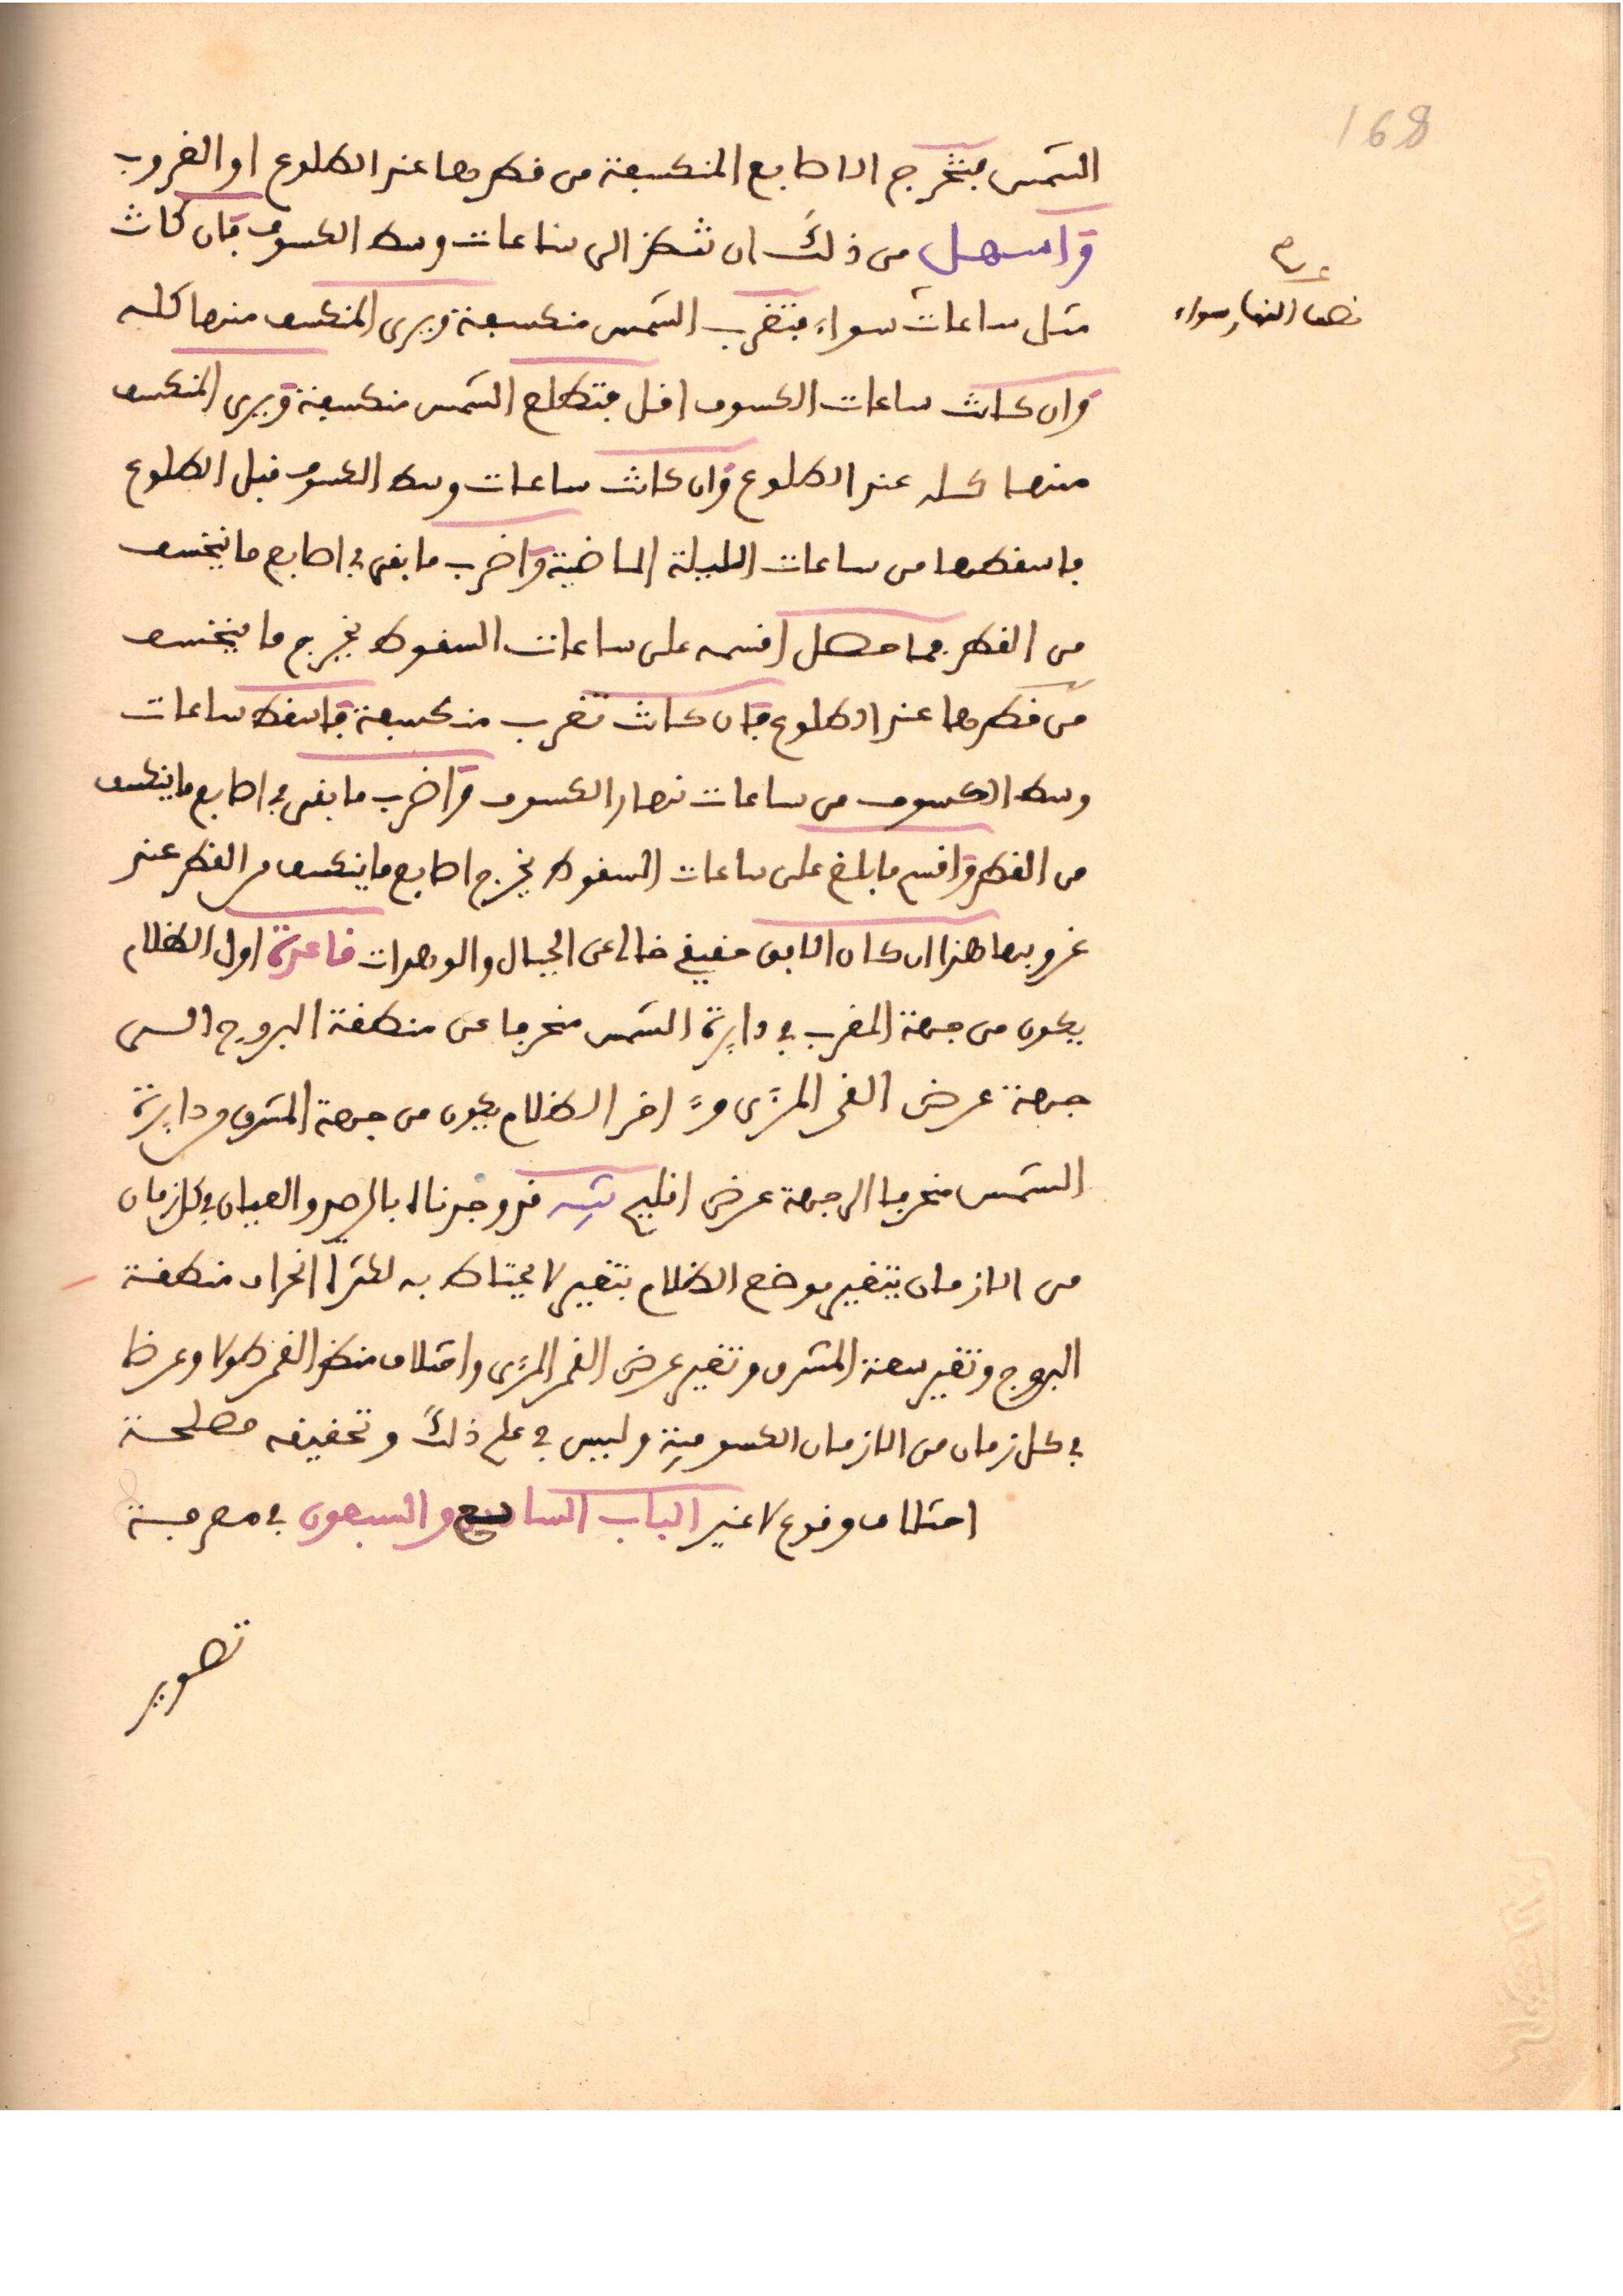 168
الشمس فتخرج الاصابع المنكسفة من قطرها عند الطلوع او الغروب
واسهل من ذلك ان تنظر الى ساعات وسط الكسوف فان كانت
مثل ساعات سواء فتغرب الشمس منكسفة ويرى المنكسف منها كله
نصف النهار سواء
وان كانت ساعات الكسوف اقل فتطلع الشمس منكسفة ويرى المنكسف
منها كله عند الطلوع وان كانت ساعات وسط الكسوف قبل الطلوع
فاسقطها من ساعات الليلة الماضية واضرب ما بقى في اصابع ما ينخسف
من القطر فما حصل اقسمه على ساعات السقوط يخرج ما ينخسف
من قطرها عند الطلوع فان كانت تغرب منكسفة فاسقط ساعات
وسط الكسوف من ساعات نهار الكسوف واضرب ما بقى في اصابع ما ينكسف
من القطر واقسم ما بلغ على ساعات السقوط يخرج اصابع ما ينكسف من القطر عند
غروبها هذا ان كان الافق حقيقي خال عن الجبال والوهدات قاعدة اول الظلام
يكون من جهة المغرب في دايرة الشمس منحرفا عن منطقة البروج الى
جهة عرض القمر المرءى وءاخر الظلام يكون من جهة المشرق من دايرة
الشمس منحرفا الى جهة عرض اقليم تنبيه قد وجدناه بالرصد والعيان في كل زمان
من الازمان يتغير موضع الظلام بتغير لا يحتاط به لكثرة انحراف منطقة
البروج وتغير سعة المشرق وتغير عرض القمر المرءى واختلاف منظر القمر طولا وعرضا
في كل زمان من الازمان الكسوفية وليس في علم ذلك وتحقيقه مصلحة
اختلاف وقوع لا غير الباب السابع والسبعون في معرفة
تصوير